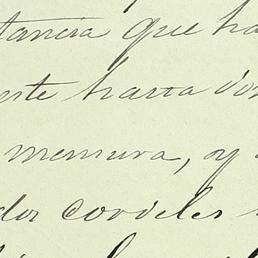 tancia que ha
este hasta do
mensura, y
dos cordeles